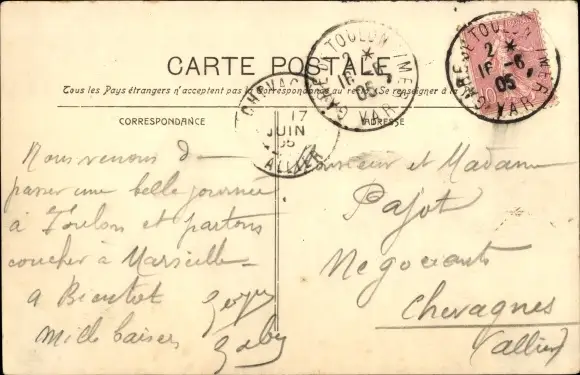 CARTE POSTALE
Tous les Pays étrangers n'acceptent pas la Correspondance au recto. Se renseigner à la
CORRESPONDANCE
ADRESSE
GARE DE TOULON /MER
2 *
16 -6
05
VAR
GARE DE TOULON /MER
2 *
16 -6
05
VAR
CHEVAG
17
JUIN
05
ALLIER
Nous venons de
passer une belle journée
à Toulon et partons
coucher à Marseille
a Bientot
mille baisers
Gaby
Monsieur et Madame
Pajot
Negociants
Chevagnes
(allier)